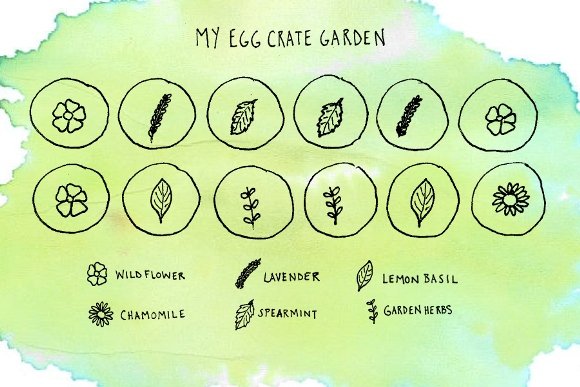 MY EGG CRATE GARDEN
WILDFLOWER LAVENDER LEMON BASIL
CHAMOMILE SPEARMINT GARDEN HERBS